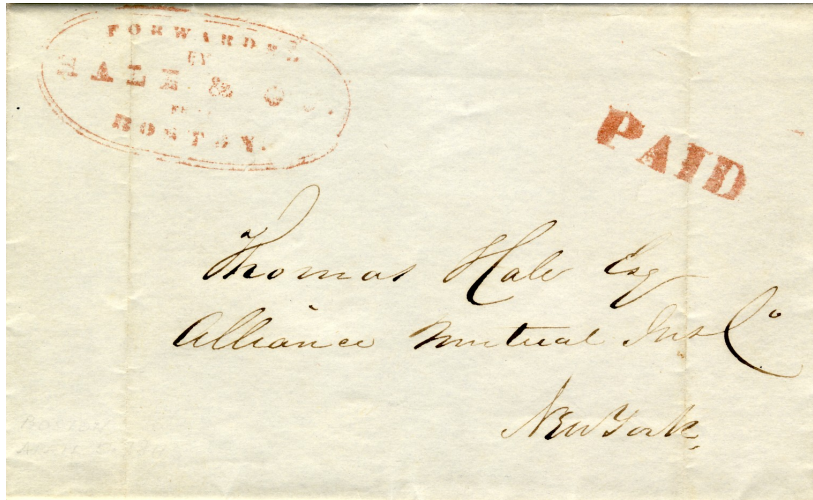 FORWARDED
BY
HALE & Co.
FROM
BOSTON.
PAID
Thomas Hale Esq
Alliance Mutual Ins Co
New York,
BOSTON